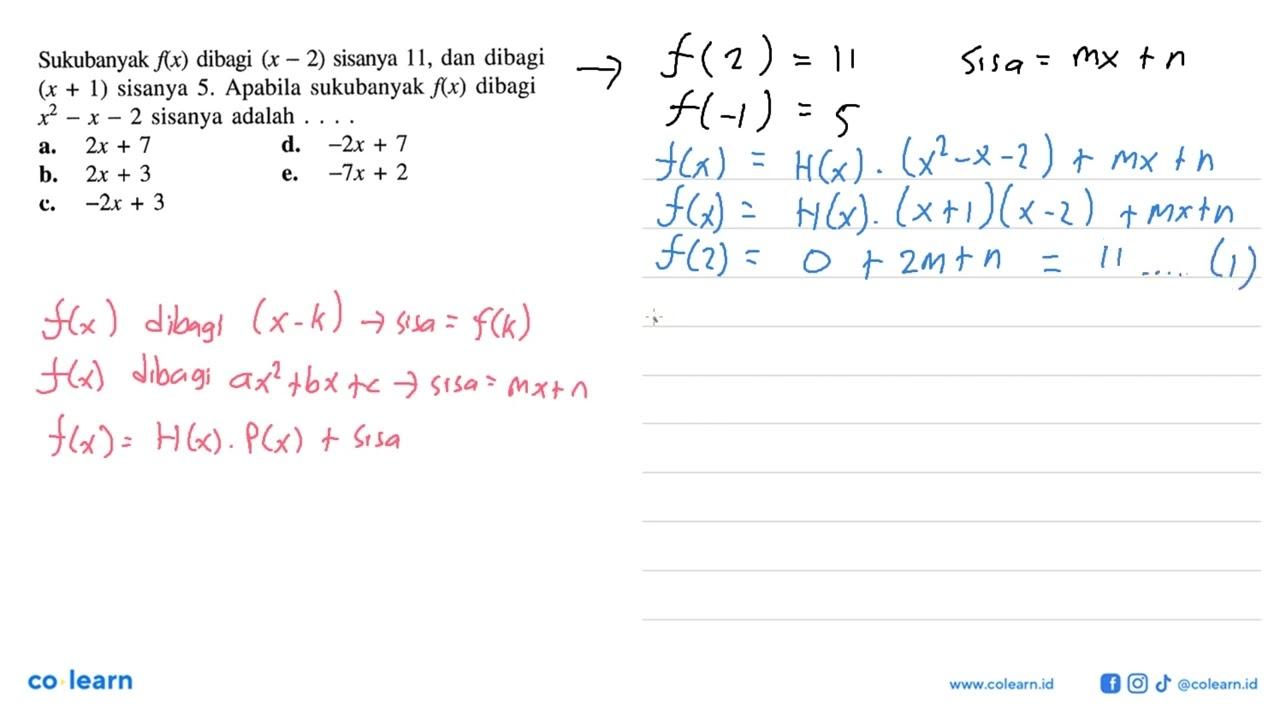 Sukubanyak f(x) dibagi (x − 2) sisanya 11, dan dibagi
(x + 1) sisanya 5. Apabila sukubanyak f(x) dibagi
x² − x − 2 sisanya adalah . . . .
a. 2x + 7 d. −2x + 7
b. 2x + 3 e. −7x + 2
c. −2x + 3
f(x) dibagi (x-k) → sisa = f(k)
f(x) dibagi ax²+bx+c → sisa = mx+n
f(x) = H(x). P(x) + sisa
→ f(2) = 11 sisa = mx + n
f(-1) = 5
f(x) = H(x). (x²-x-2) + mx + n
f(x) = H(x). (x+1)(x-2) + mx+n
f(2) = 0 + 2m+n = 11 ..... (1)
co learn
www.colearn.id @colearn.id